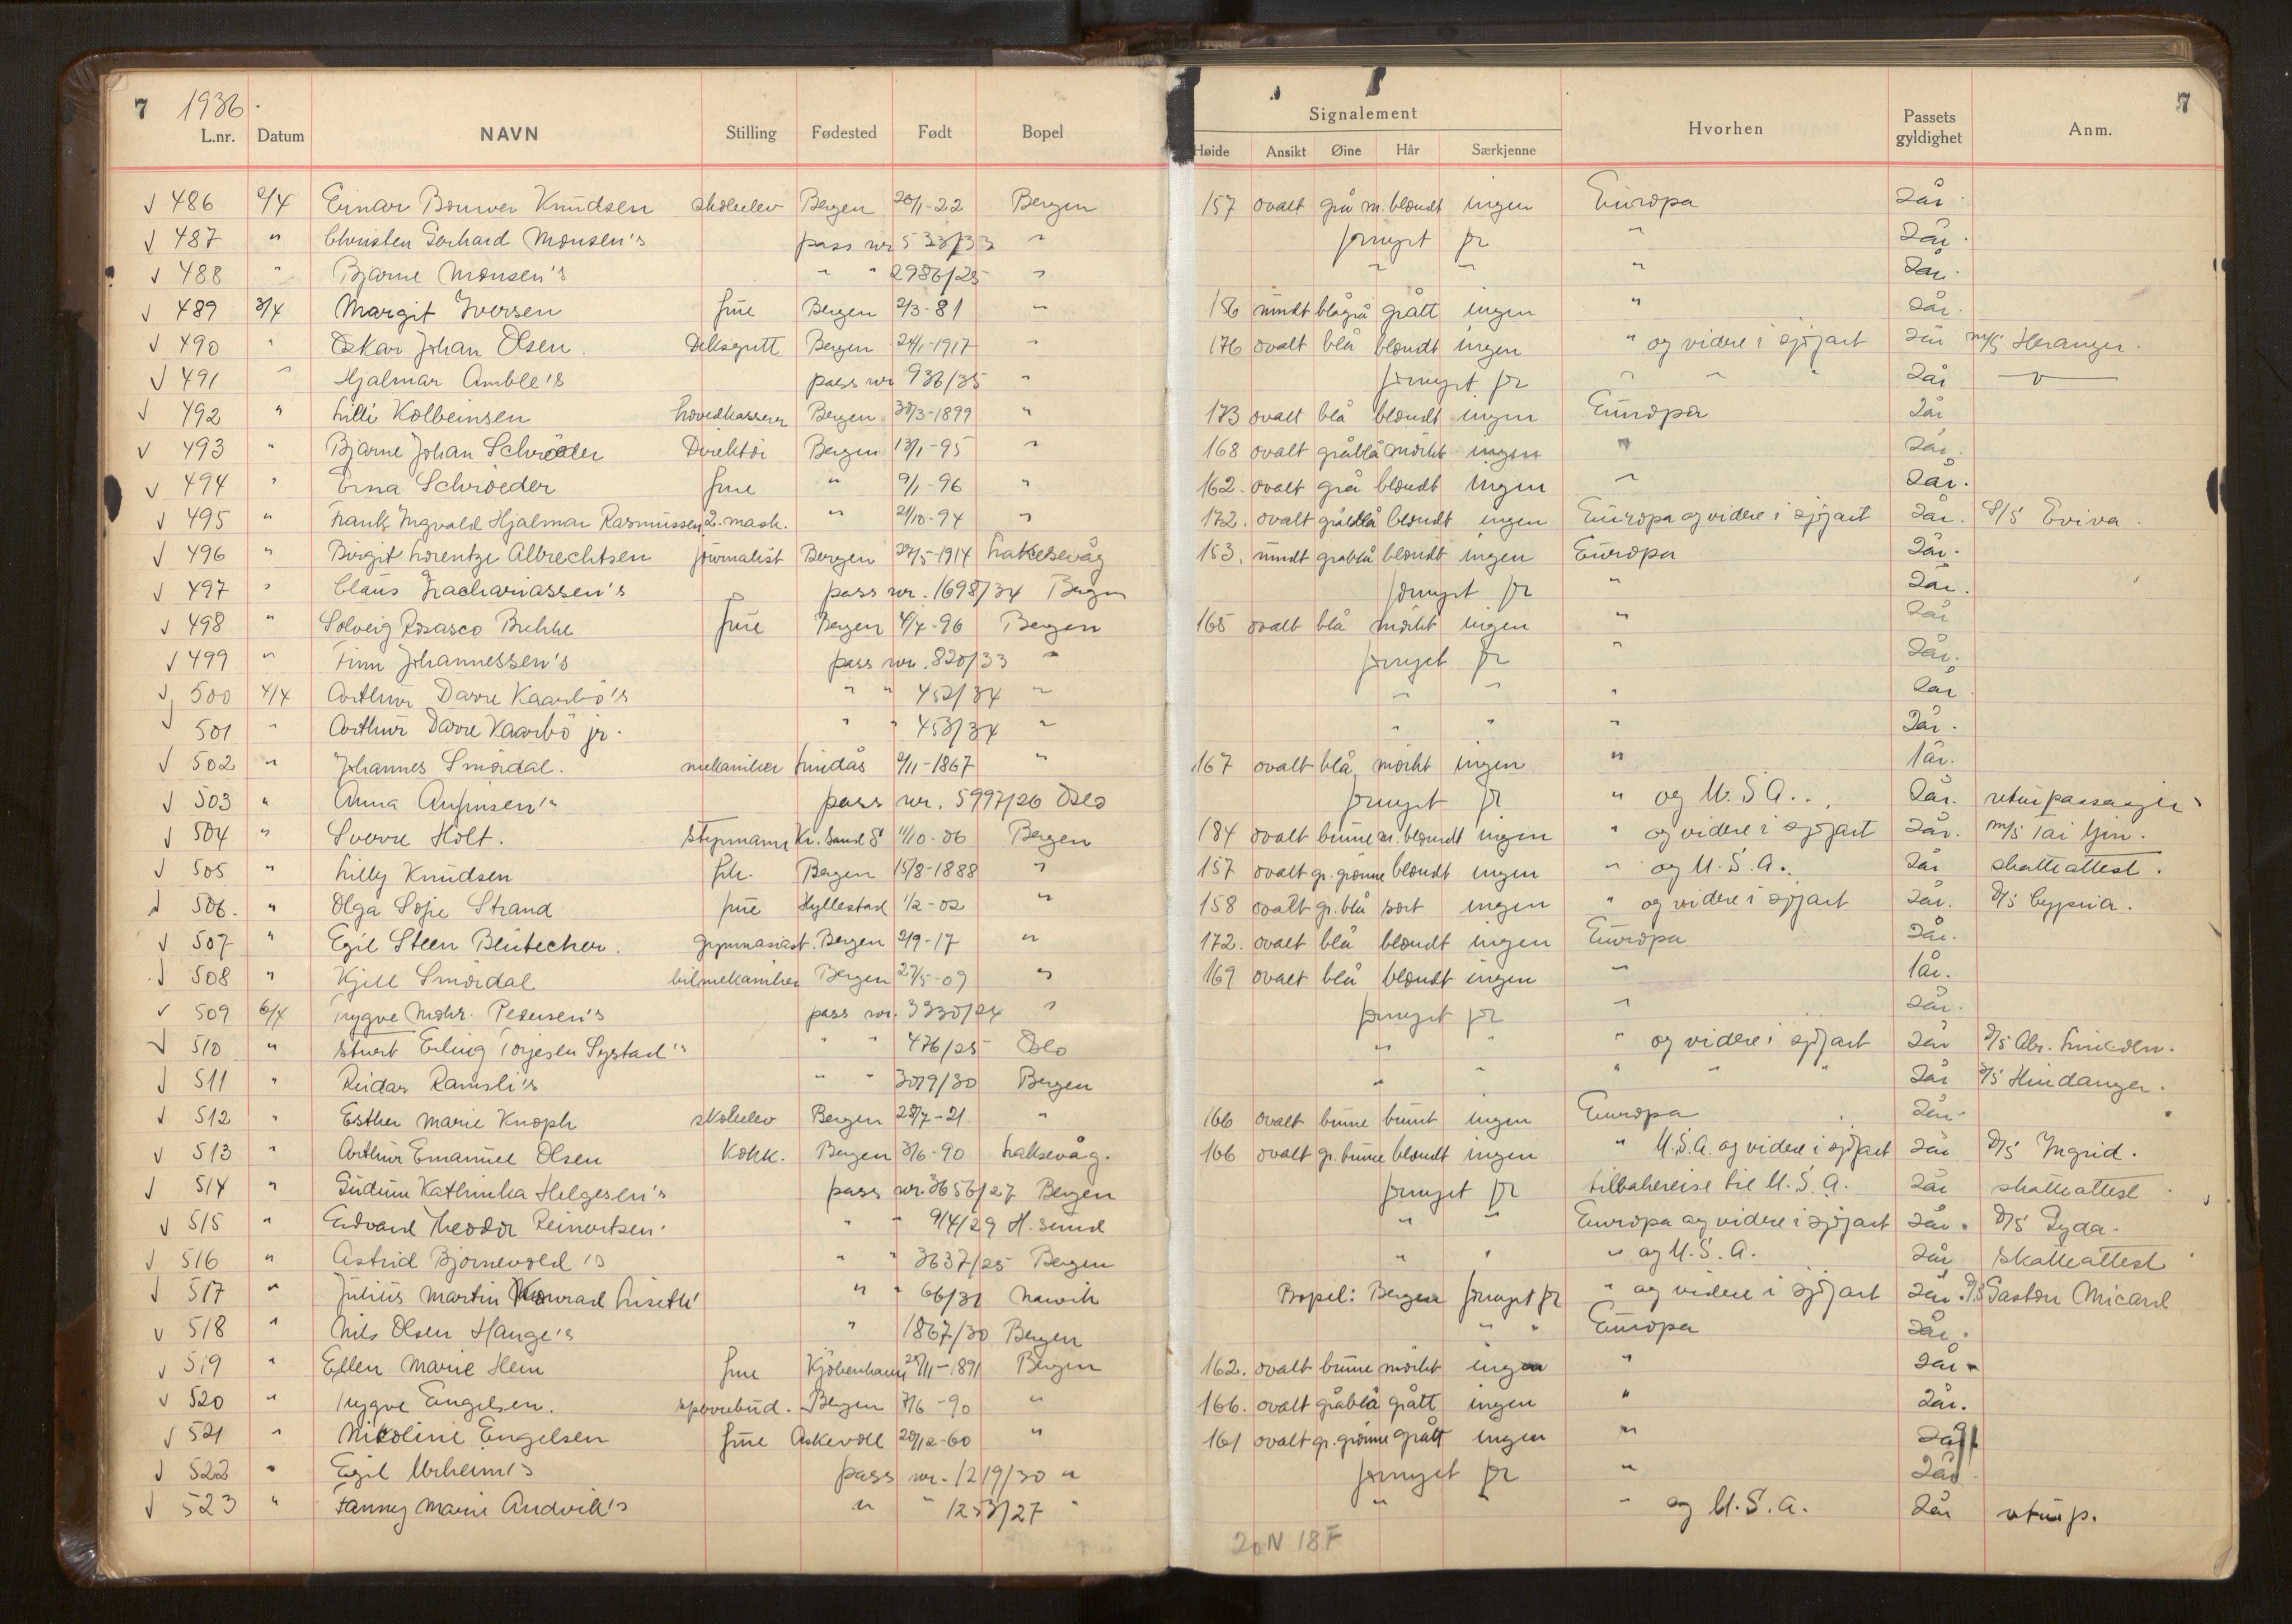 7 1936.
L.nr. Datum NAVN Stilling Fødested Født Bopel Signalement Hvorhen Passets gyldighet Anm. 7
Høide Ansikt Øine Hår Særkjenne
√ 486 2/4 Einar Knudsen skoleelev Bergen 20/1-22 Bergen 157 ovalt grå m. blondt ingen Europa 2 år
√ 487 " Christen Gerhard Monsen's pass nr 533/33 " fornyet for " 2 år.
√ 488 " Bjarne Monsen's " " 2986/25 " " " " 2 år.
√ 489 3/4 Margit Iversen frue Bergen 2/3-81 " 156 rundt blågrå grått ingen " 2 år.
√ 490 " Oskar Johan Olsen. Deksgutt Bergen 24/1-1917 " 176 ovalt blå blondt ingen " og videre i sjøfart 2 år m/s Heranger.
√ 491 " Hjalmar Amble's pass nr 936/35 " fornyet for " " " 2 år — " —
√ 492 " Lilli Kolbeinsen hovedkasserer Bergen 30/3-1899 " 173 ovalt blå blondt ingen Europa 2 år
√ 493 " Bjarne Johan Schröder Direktör Bergen 13/1-95 " 168 ovalt gråblå mörkt ingen " 2 år.
√ 494 " Erna Schröeder frue " 9/1-96 " 162. ovalt grå blondt ingen " 2 år.
√ 495 " Frank Ingvald Hjalmar Rasmussen 2. mask. " 2/10-94 " 172. ovalt gråblå blondt ingen Europa og videre i sjøfart 2 år. S/S Eviva.
√ 496 " Birgit Lorentze Albrechtsen journalist Bergen 27/5-1914 Laksevåg 153. rundt gråblå blondt ingen Europa 2 år.
√ 497 " Claus Zachariassen's pass nr. 1698/34 Bergen fornyet for " 2 år.
√ 498 " Solveig Rosasco frue Bergen 4/4-96 Bergen 165 ovalt blå mörkt ingen " 2 år
√ 499 " Finn Johannessen's pass nr. 820/33 " fornyet for " 2 år.
√ 500 4/4 Arthur Darre Kaarbö's " " 452/34 " " " " 2 år.
√ 501 " Arthur Darre Kaarbö jr. " " 453/34 " " " " 2 år.
√ 502 " Johannes Smördal. mekaniker Lindås 9/11-1867 " 167 ovalt blå mörkt ingen " 1 år.
√ 503 " Anna pass nr. 5997/26 Oslo fornyet for " og U.S.A. 2 år. retur passasjer
√ 504 " Sverre Holt. styrmann Kr. Sand S 11/10-06 Bergen 184 ovalt brune m. blondt ingen " og videre i sjøfart 2 år. m/s Tai Yin.
√ 505 " Lilly Knudsen frk. Bergen 15/8-1888 " 157 ovalt gr. grönne blondt ingen " og U.S.A. 2 år skatteattest.
√ 506. " Olga Sofie Strand frue Hyllestad 1/2-02 " 158 ovalt gr. blå sort ingen " og videre i sjøfart 2 år. D/S Cypria.
√ 507 " Egil Steen Blütecher. gymnasiast. Bergen 2/9-17 " 172. ovalt blå blondt ingen Europa 2 år.
√ 508 " Kjell Smördal bilmekaniker Bergen 27/5-09 " 169 ovalt blå blondt ingen " 1 år.
√ 509 6/4 Trygve Mohr. Pedersen's pass nr. 3330/24 " fornyet for " 2 år.
√ 510 " Erling Torjesen Systad's " " 476/25 Oslo " " " og videre i sjøfart 2 år D/S Abr. Lincoln.
√ 511 " Reidar Ramsli's " " 3019/30 Bergen " " " " " 2 år D/S Hindanger.
√ 512 " Esther Marie Knoph skoleelev Bergen 28/7-21. " 166 ovalt brune brunt ingen Europa 2 år.
√ 513 " Arthur Emanuel Olsen Kokk. Bergen 3/6-90 Laksevåg. 166 ovalt gr. brune blondt ingen " U.S.A. og videre i sjøfart 2 år D/S Ingrid.
√ 514 " Gudrun Kathinka Helgesen's pass nr. 3656/27 Bergen fornyet for tilbakereise til U.S.A. 2 år skatteattest
√ 515 " Edvard Theodor Reinertsen. " " 914/29 H. sund " " Europa og videre i sjøfart 2 år. D/S Gyda.
√ 516 " Astrid Bjornevold 's " " 3637/25 Bergen " " " og U.S.A. 2 år skatteattest
√ 517 " Julius Martin Konrad Liseth' " " 66/31 Narvik Bopel: Bergen fornyet for " og videre i sjøfart 2 år. D/S Gaston Micard
√ 518 " Nils Olsen Hauge's " 1867/30 Bergen " " Europa 2 år.
√ 519 " Ellen Marie Hem frue Kjöbenhavn 25/11-1891 Bergen 162. ovalt brune mörkt ingen " 2 år
√ 520 " Trygve Engelsen. sporrebud. Bergen 7/6-90 " 166. ovalt gråblå grått ingen " 2 år.
√ 521 " Nicoline Engelsen frue Askevoll 20/12-60 " 161 ovalt gr. grönne grått ingen " 2 år
√ 522 " Egil Urheim's pass nr. 1219/30 " fornyet for " 2 år.
√ 523 " Fanny Marie Andvik's " " 1253/27 " " " " og U.S.A. 2 år retur p.
20 N 18 F